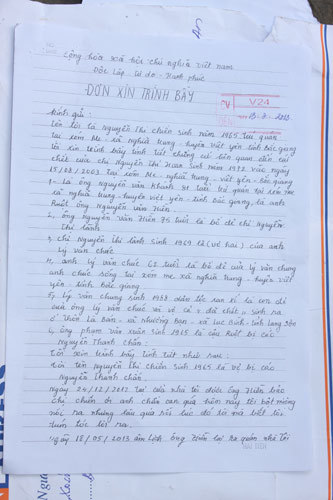 Cộng hòa xã hội chủ nghĩa việt nam
Độc Lập - tự do - Hạnh phúc
ĐƠN XIN TRÌNH BÀY
V24
ĐẾN
Kính gửi:
Tên tôi là Nguyễn Thị chiến sinh năm 1965 Trú quán
tại xóm Mẻ - xã nghĩa trung - huyện Việt yên tỉnh bắc giang
tôi xin trình bày tình tiết chứng cứ liên quan đến cái
chết của chị Nguyễn Thị Hoan sinh năm 1972 vào ngày
15/08/2003 Tại xóm Mẻ - nghĩa trung - việt yên - bắc giang
1 - là ông nguyễn văn Khánh Trú quán tại xóm mẻ
xã nghĩa trung - huyện việt yên - tỉnh bắc giang là anh
Ruột ông Nguyễn văn Hiền
2, ông nguyễn văn Hiền 75 tuổi là bố đẻ chị Nguyễn
Thị Lành
3, chị Nguyễn Thị Lành Sinh 1969 là (vợ hai) của anh
Lý văn chúc
4, anh lý văn chúc 62 tuổi là bố đẻ của Lý văn chung
anh chúc sống tại xóm mẻ xã nghĩa trung - huyện việt
yên - tỉnh bắc giang
5, Lý văn chung sinh 1988 dân tộc là con đẻ
của ông lý văn chúc và vợ cả đã chết, sinh ra
ở thôn xã - xã Lục Bình - tỉnh lạng sơn
6, ông phạm văn xuân sinh 1965 là cậu Ruột bị cáo
Nguyễn Thanh Chấn:
Tôi xin trình bày tình tiết như sau:
Tôi tên Nguyễn Thị chiến sinh 1965 là vợ bị cáo
Nguyễn Thanh chấn.
Ngày của nhà tôi dưới ông Hiền bảo
chị chiến ơi anh chấn oan quá hôm nay tôi bật miệng
nói ra nhưng lâu quá rồi lúc đó tôi mà biết tôi
túm tóc lôi ra.
ngày 18/05/2013 âm Lịch ông Hiền lại ra quán nhà tôi